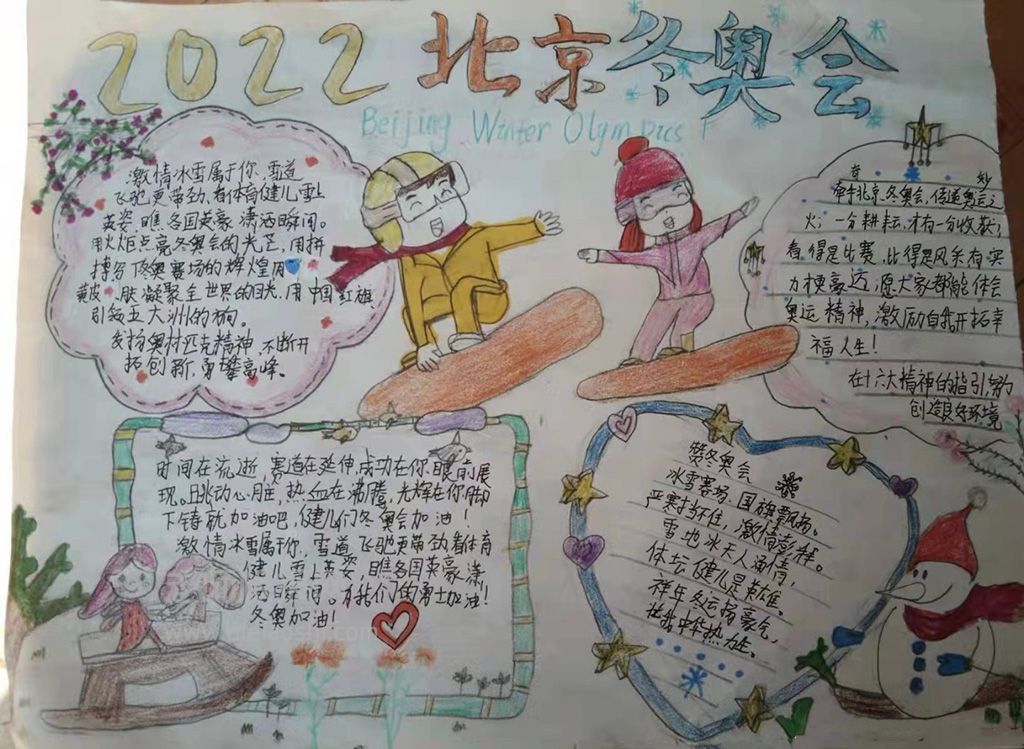 2022北京冬奥会
Beijing Winter Olympics
激情冰雪属于你,雪道
飞驰更带劲,看体育健儿雪上
英姿,瞧各国英豪潇洒瞬间。
用火炬点亮冬奥会的光芒,用拼
搏夯下冬奥赛场的辉煌,用
黄皮肤凝聚全世界的目光,用中国红旗
引领五大洲的方向。
发扬奥林匹克精神,不断开
拓创新,勇攀高峰。
牵手北京冬奥会,传递奥运之
火;一分耕耘,才有一分收获;
看得是比赛,比得是风采有实
力梗豪迈愿大家都能体会
奥运精神,激励自我开拓幸
福人生!
在十六大精神的指引
创造良好环境
时间在流逝,赛道在延伸,成功在你眼前展
现。跳动心脏,热血在沸腾,光辉在你脚
下铸就加油吧,健儿们冬奥会加油!
激情冰雪属于你,雪道飞驰更带劲,看体育
健儿雪上英姿,瞧各国英豪潇
洒瞬间。为我们的勇士加油!
冬奥加油!
赞冬奥会
冰雪赛场,国旗飘扬。
严寒挡不住,激情澎湃。
雪地冰天人通情,
体坛健儿是英雄。
祥年冬运扬豪气,
壮我中华热力生。